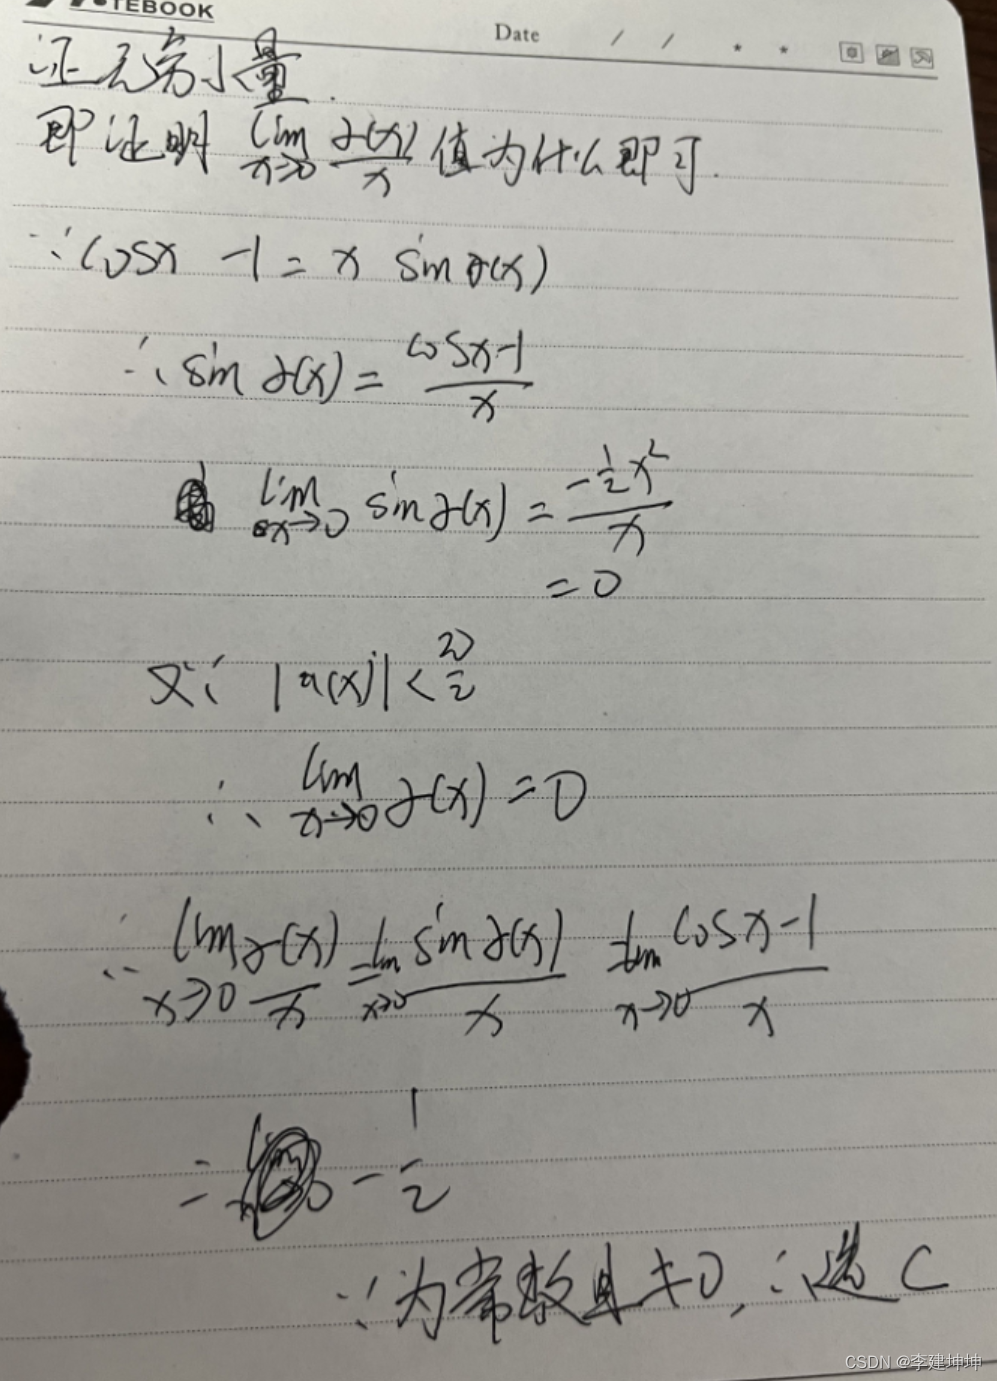 TEBOOK
Date / /
证无穷小量.
即证明 lim x→0 α(x)/x 值为什么即可.
∵ cosx -1 = x sin α(x)
∴ sin α(x) = cosx-1/x
lim x→0 sin α(x) = -½x²/x
= 0
又∵ |α(x)| < π/2
∴ lim x→0 α(x) = 0
∴ lim x→0 α(x)/x = lim x→0 sin α(x)/x = lim x→0 cosx-1/x
= -1/2
∵ 为常数且≠0, ∴ 选 C
CSDN @李建坤坤